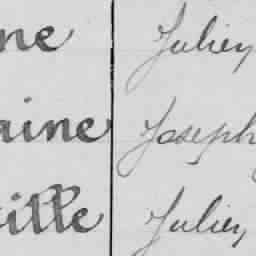 ne Julien
aine Joseph
ille Julien